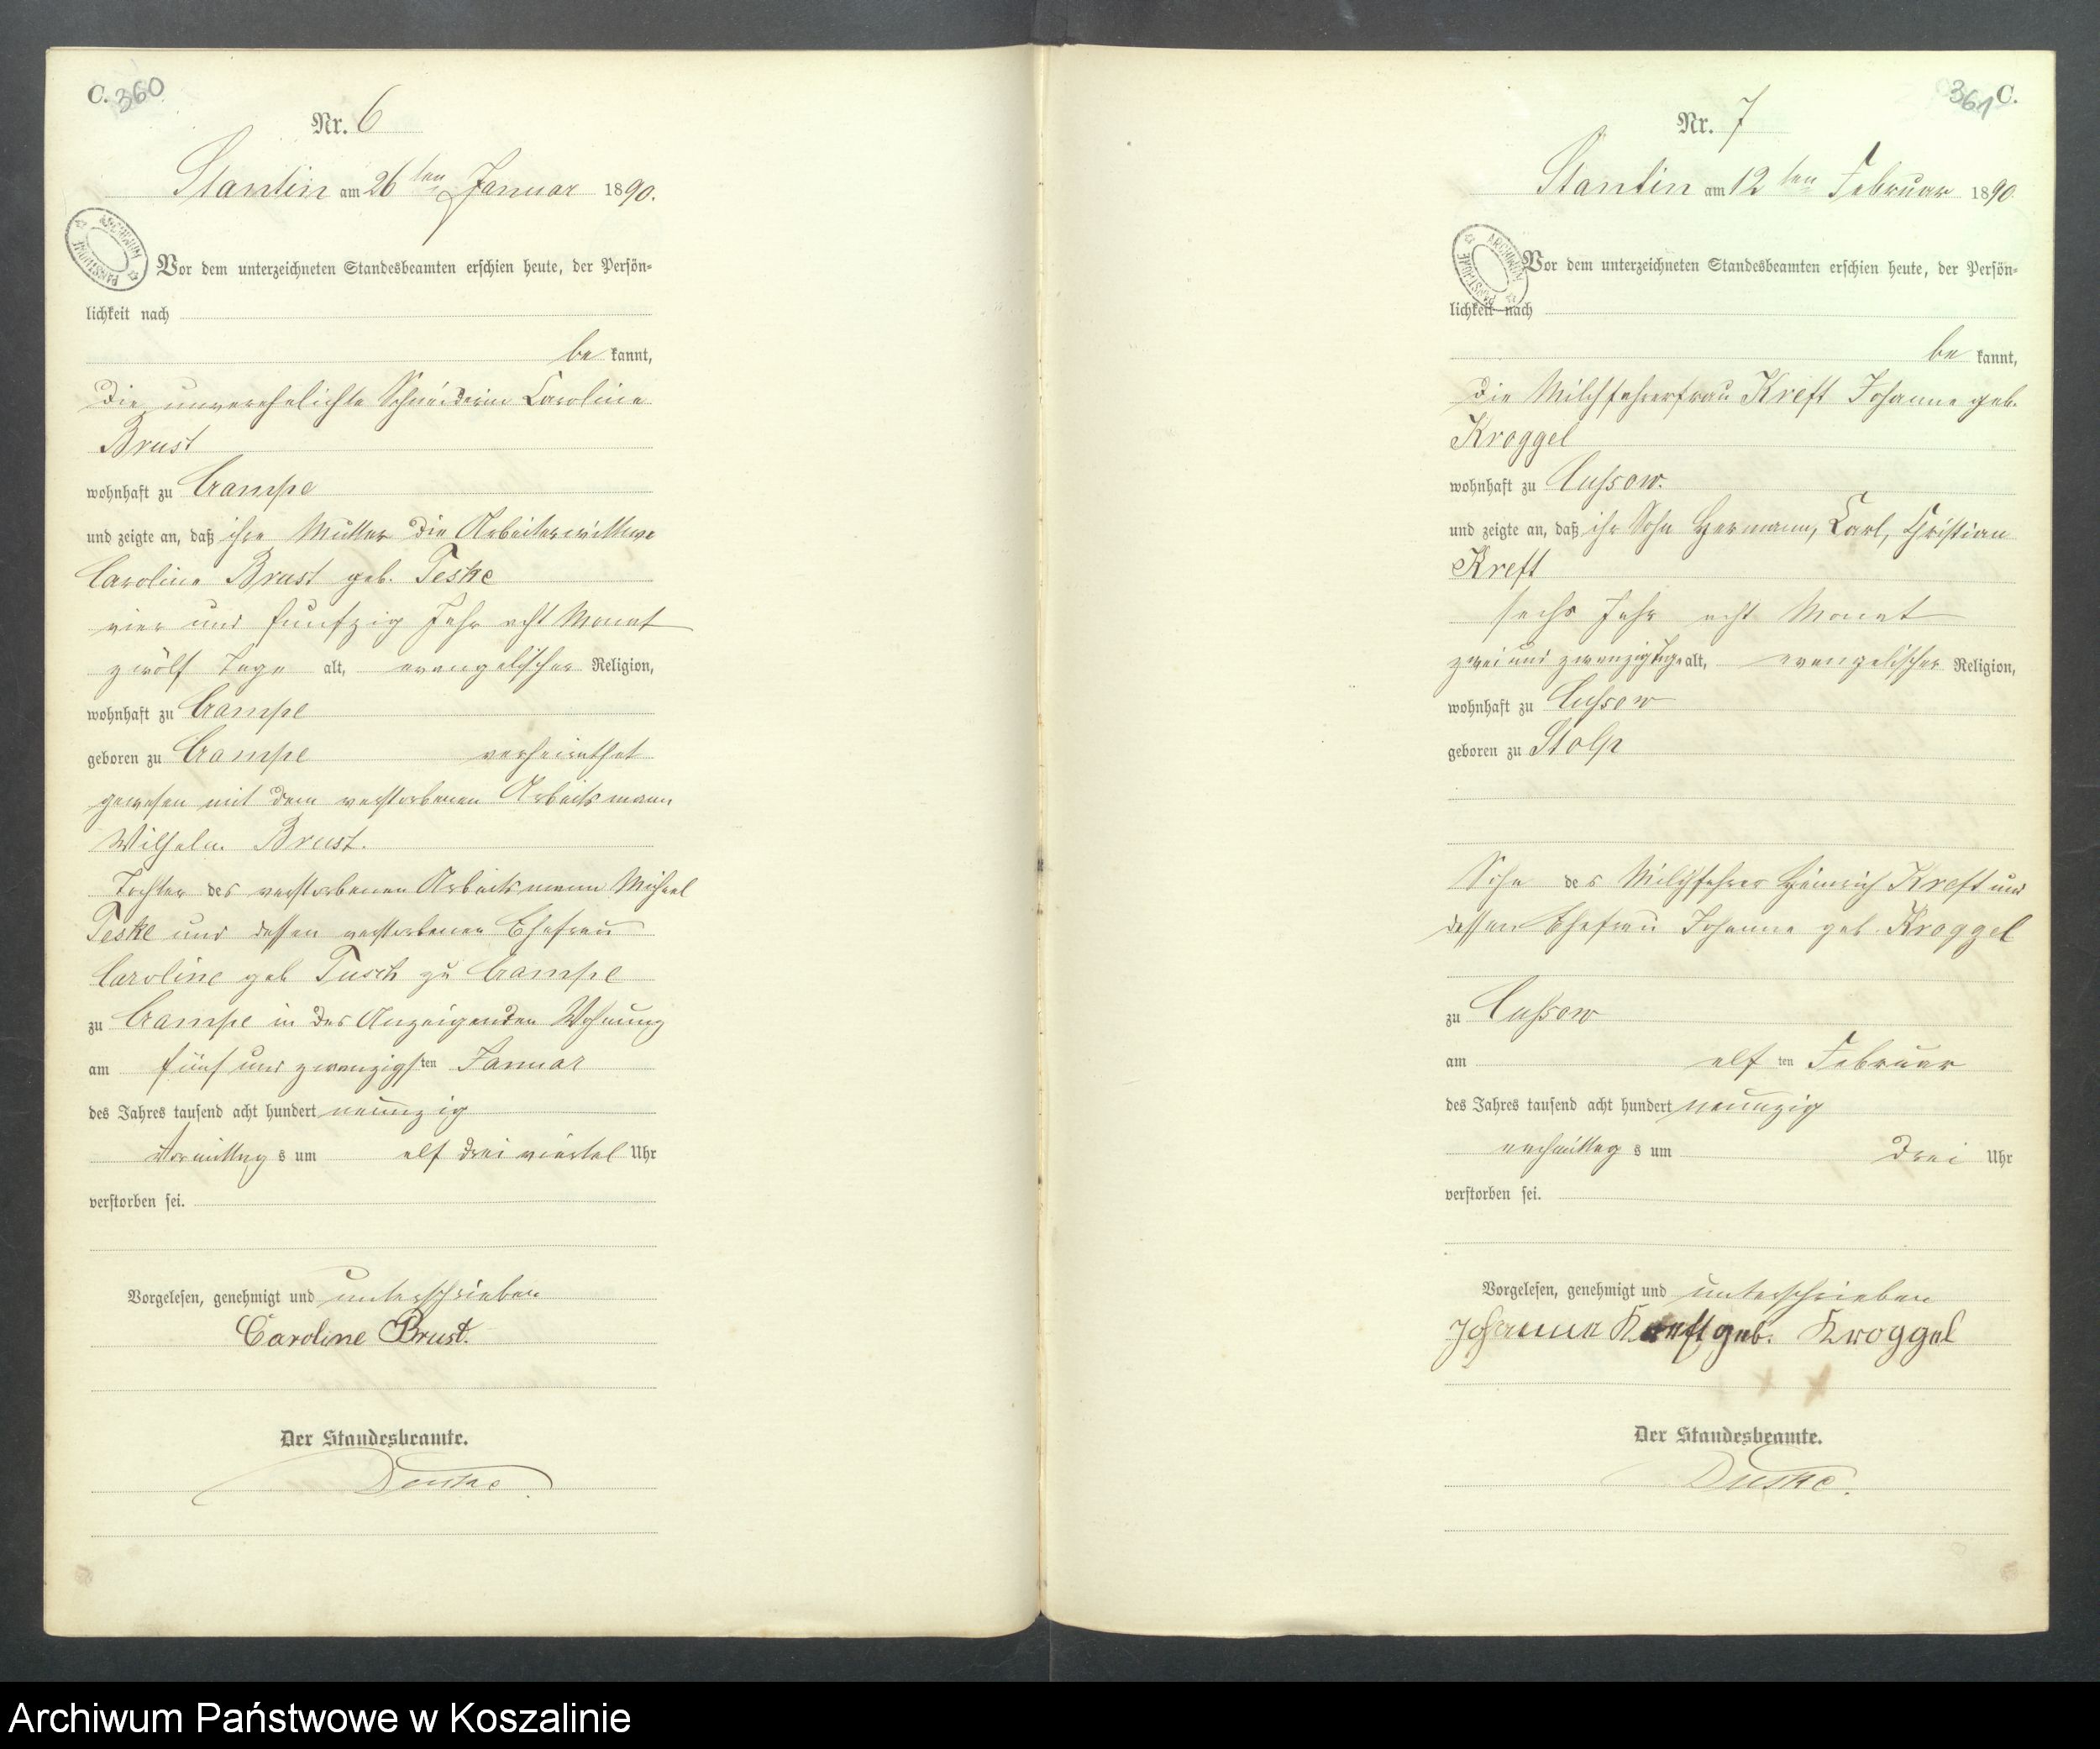 C. 360
Nr. 6
Stantin am 26ten Januar 1890.
ARCHIWUM PAŃSTWOWE
Vor dem unterzeichneten Standesbeamten erschien heute, der Persön-
lichkeit nach
be kannt,
die unverehelichte Schneiderin Caroline
Brust
wohnhaft zu Gampe
und zeigte an, daß ihre Mutter die Arbeiterwittwe
Caroline Brust geb. Teske
vier und funfzig Jahr acht Monat
zwölf Tage alt, evangelischer Religion,
wohnhaft zu Gampe
geboren zu Gampe verheirathet
gewesen mit dem verstorbenen Arbeitsmann
Wilhelm Brust.
Tochter des verstorbenen Arbeitsmann Michael
Teske und dessen verstorbenen Ehefrau
Caroline geb Tusch zu Gampe
zu Gampe in der Anzeigenden Wohnung
am fünf und zwanzigsten Januar
des Jahres tausend acht hundert neunzig
Vormittag s um elf drei viertel Uhr
verstorben sei.
Vorgelesen, genehmigt und unterschrieben
Caroline Brust.
Der Standesbeamte.
361 C.
Nr. 7
Stantin am 12ten Februar 1890.
ARCHIWUM PAŃSTWOWE
Vor dem unterzeichneten Standesbeamten erschien heute, der Persön-
lichkeit nach
be kannt,
die Milchfahrerfrau Kreft Johanne geb.
Kroggel
wohnhaft zu Cussow.
und zeigte an, daß ihr Sohn Hermann, Carl, Christian
Kreft
sechs Jahr acht Monat
zwei und zwanzig Tage alt, evangelischer Religion,
wohnhaft zu Cussow
geboren zu Stolp
Sohn des Milchfahrer Heinrich Kreft und
dessen Ehefrau Johanne geb. Kroggel
zu Cussow
am elf ten Februar
des Jahres tausend acht hundert neunzig
nachmittag s um drei Uhr
verstorben sei.
Vorgelesen, genehmigt und unterschrieben
Johanne Kreft geb. Kroggel
Der Standesbeamte.
Archiwum Państwowe w Koszalinie